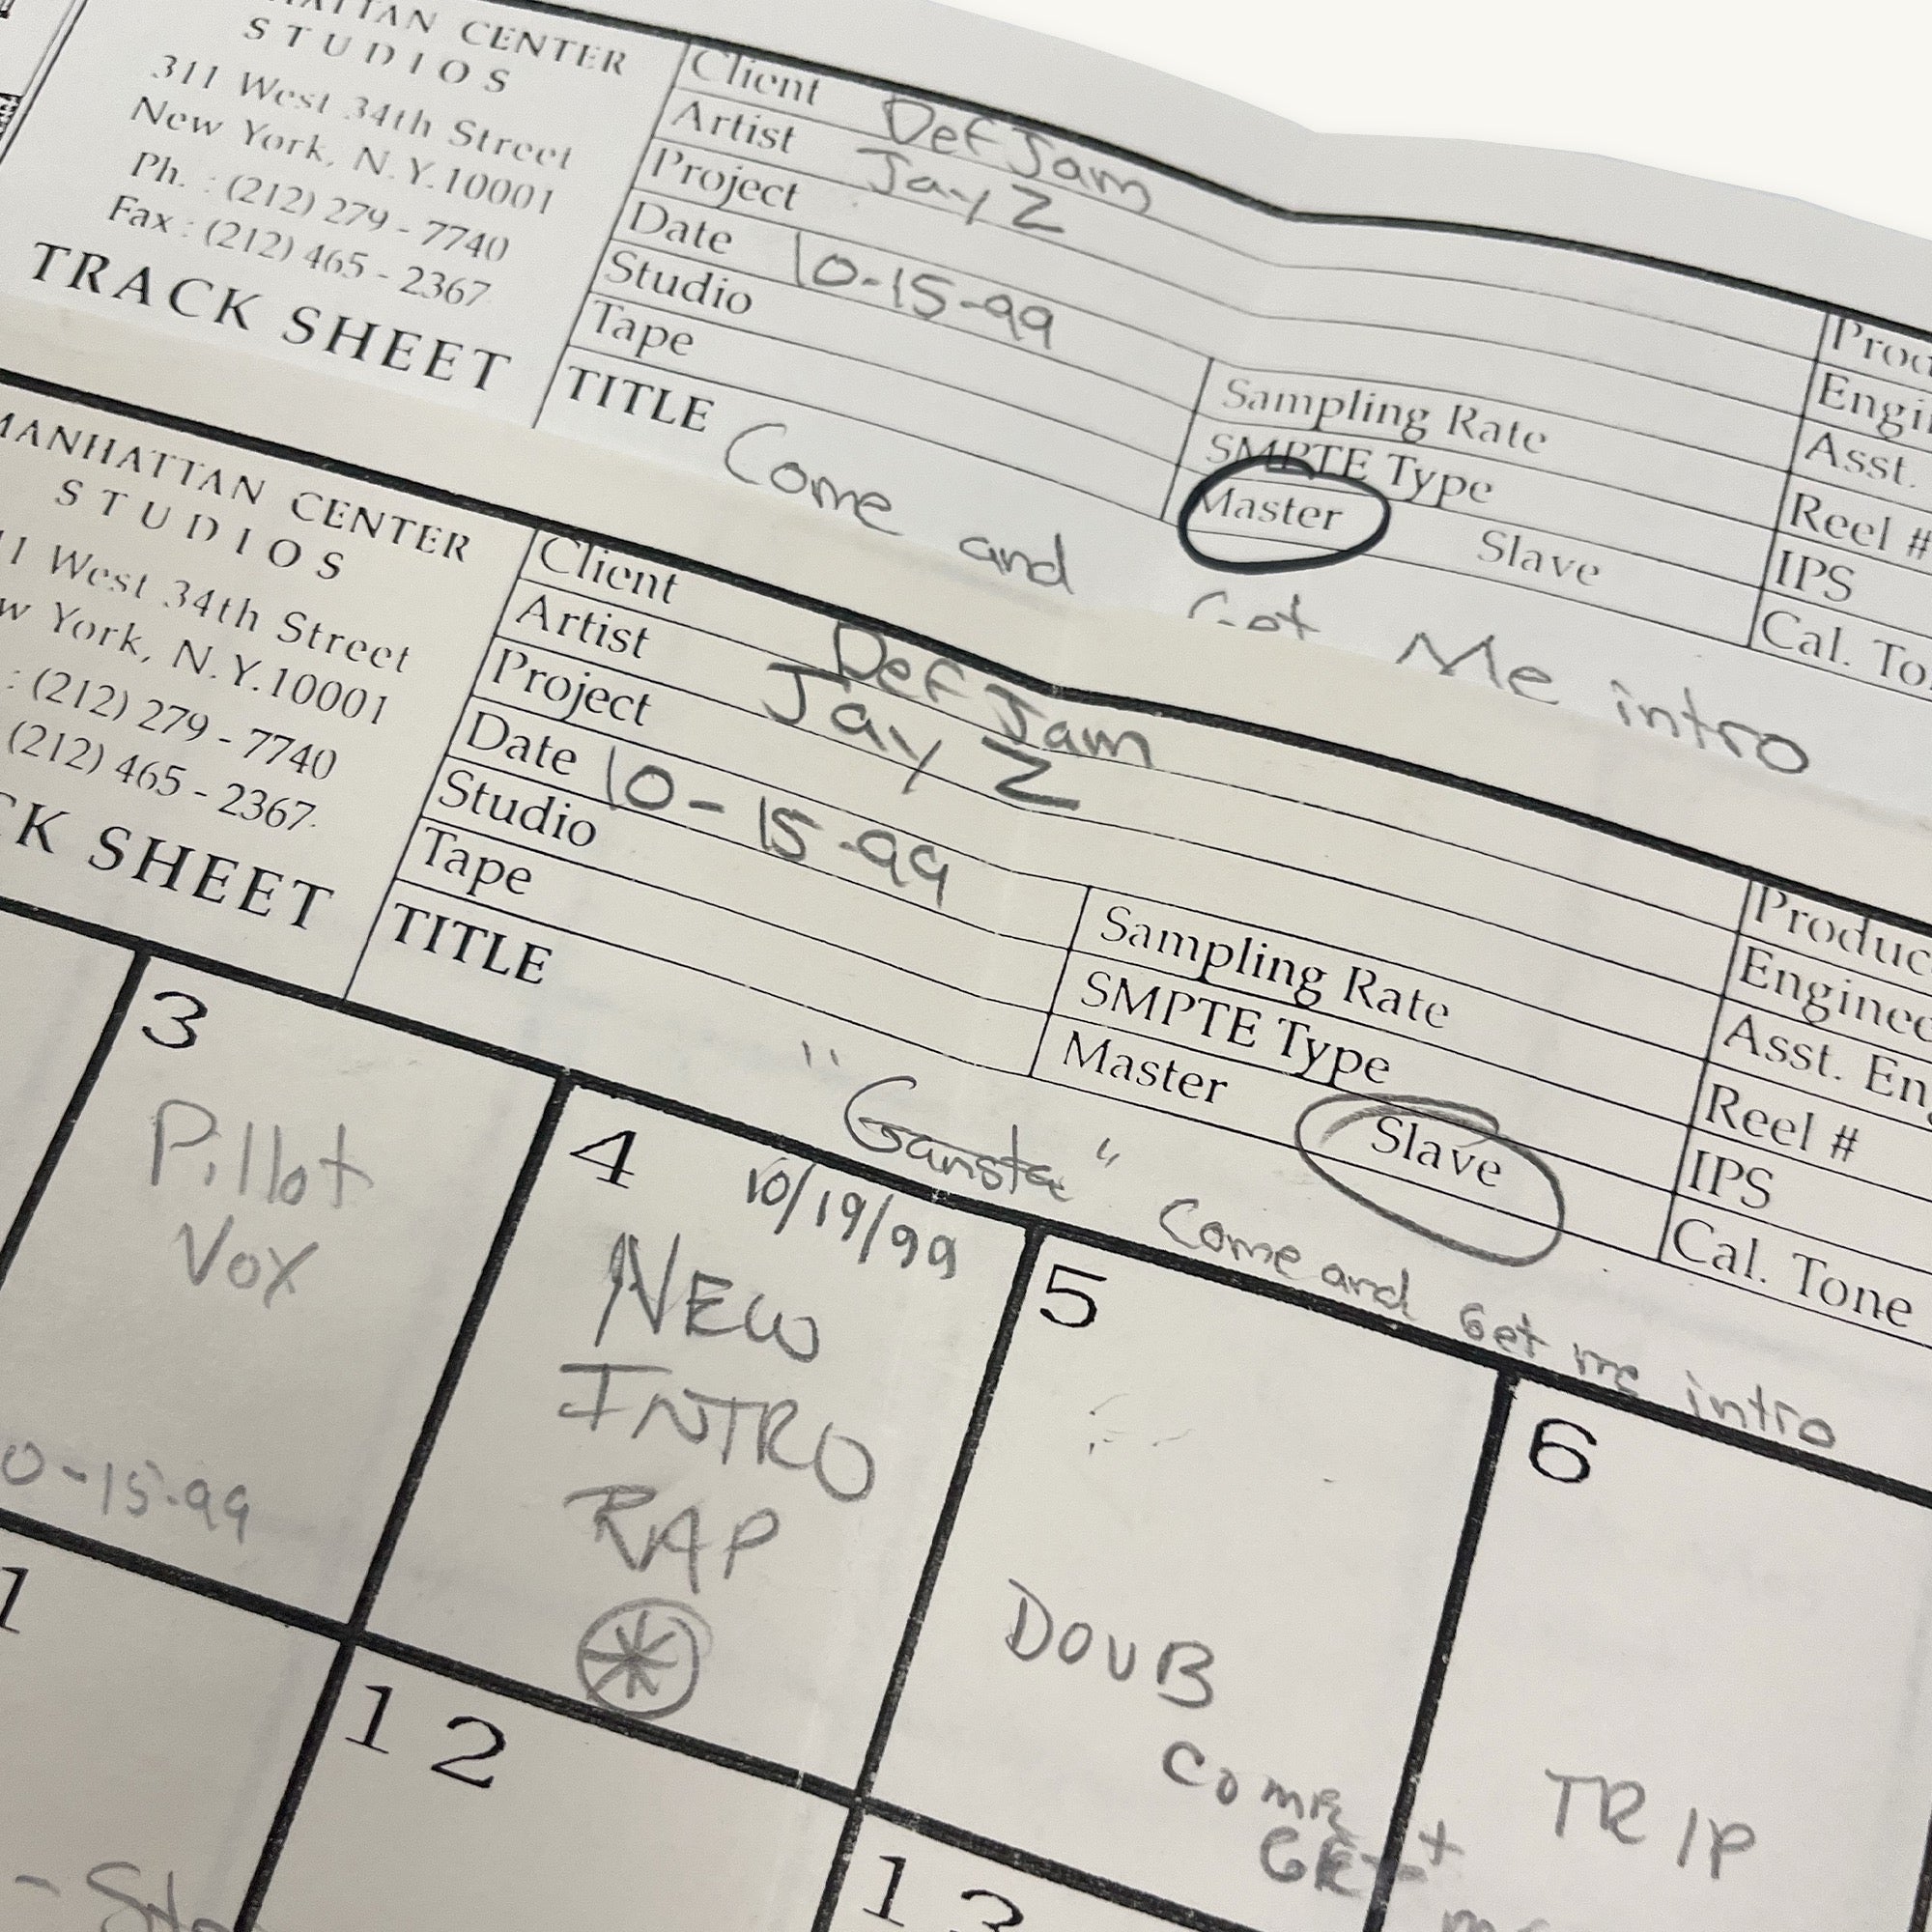 ATTAN CENTER
STUDIOS
311 West 34th Street
New York, N.Y.10001
Ph. : (212) 279 - 7740
Fax : (212) 465 - 2367
TRACK SHEET
Client Def Jam
Artist Jay Z
Project
Date 10-15-99
Studio
Tape
TITLE Come and Get Me intro
Sampling Rate
SMPTE Type
Master Slave
Prod
Engi
Asst.
Reel #
IPS
Cal. To
MANHATTAN CENTER
STUDIOS
11 West 34th Street
w York, N.Y.10001
: (212) 279 - 7740
(212) 465 - 2367
CK SHEET
Client Def Jam
Artist Jay Z
Project
Date 10-15-99
Studio
Tape
TITLE
Sampling Rate
SMPTE Type
Master Slave
Produc
Enginee
Asst. En
Reel #
IPS
Cal. Tone
"Gansta" Come and Get me intro
3
Pillot
Vox
0-15-99
4
10/19/99
NEW
INTRO
RAP
5
DOUB
COME
GET
6
TRIP
1
12
13